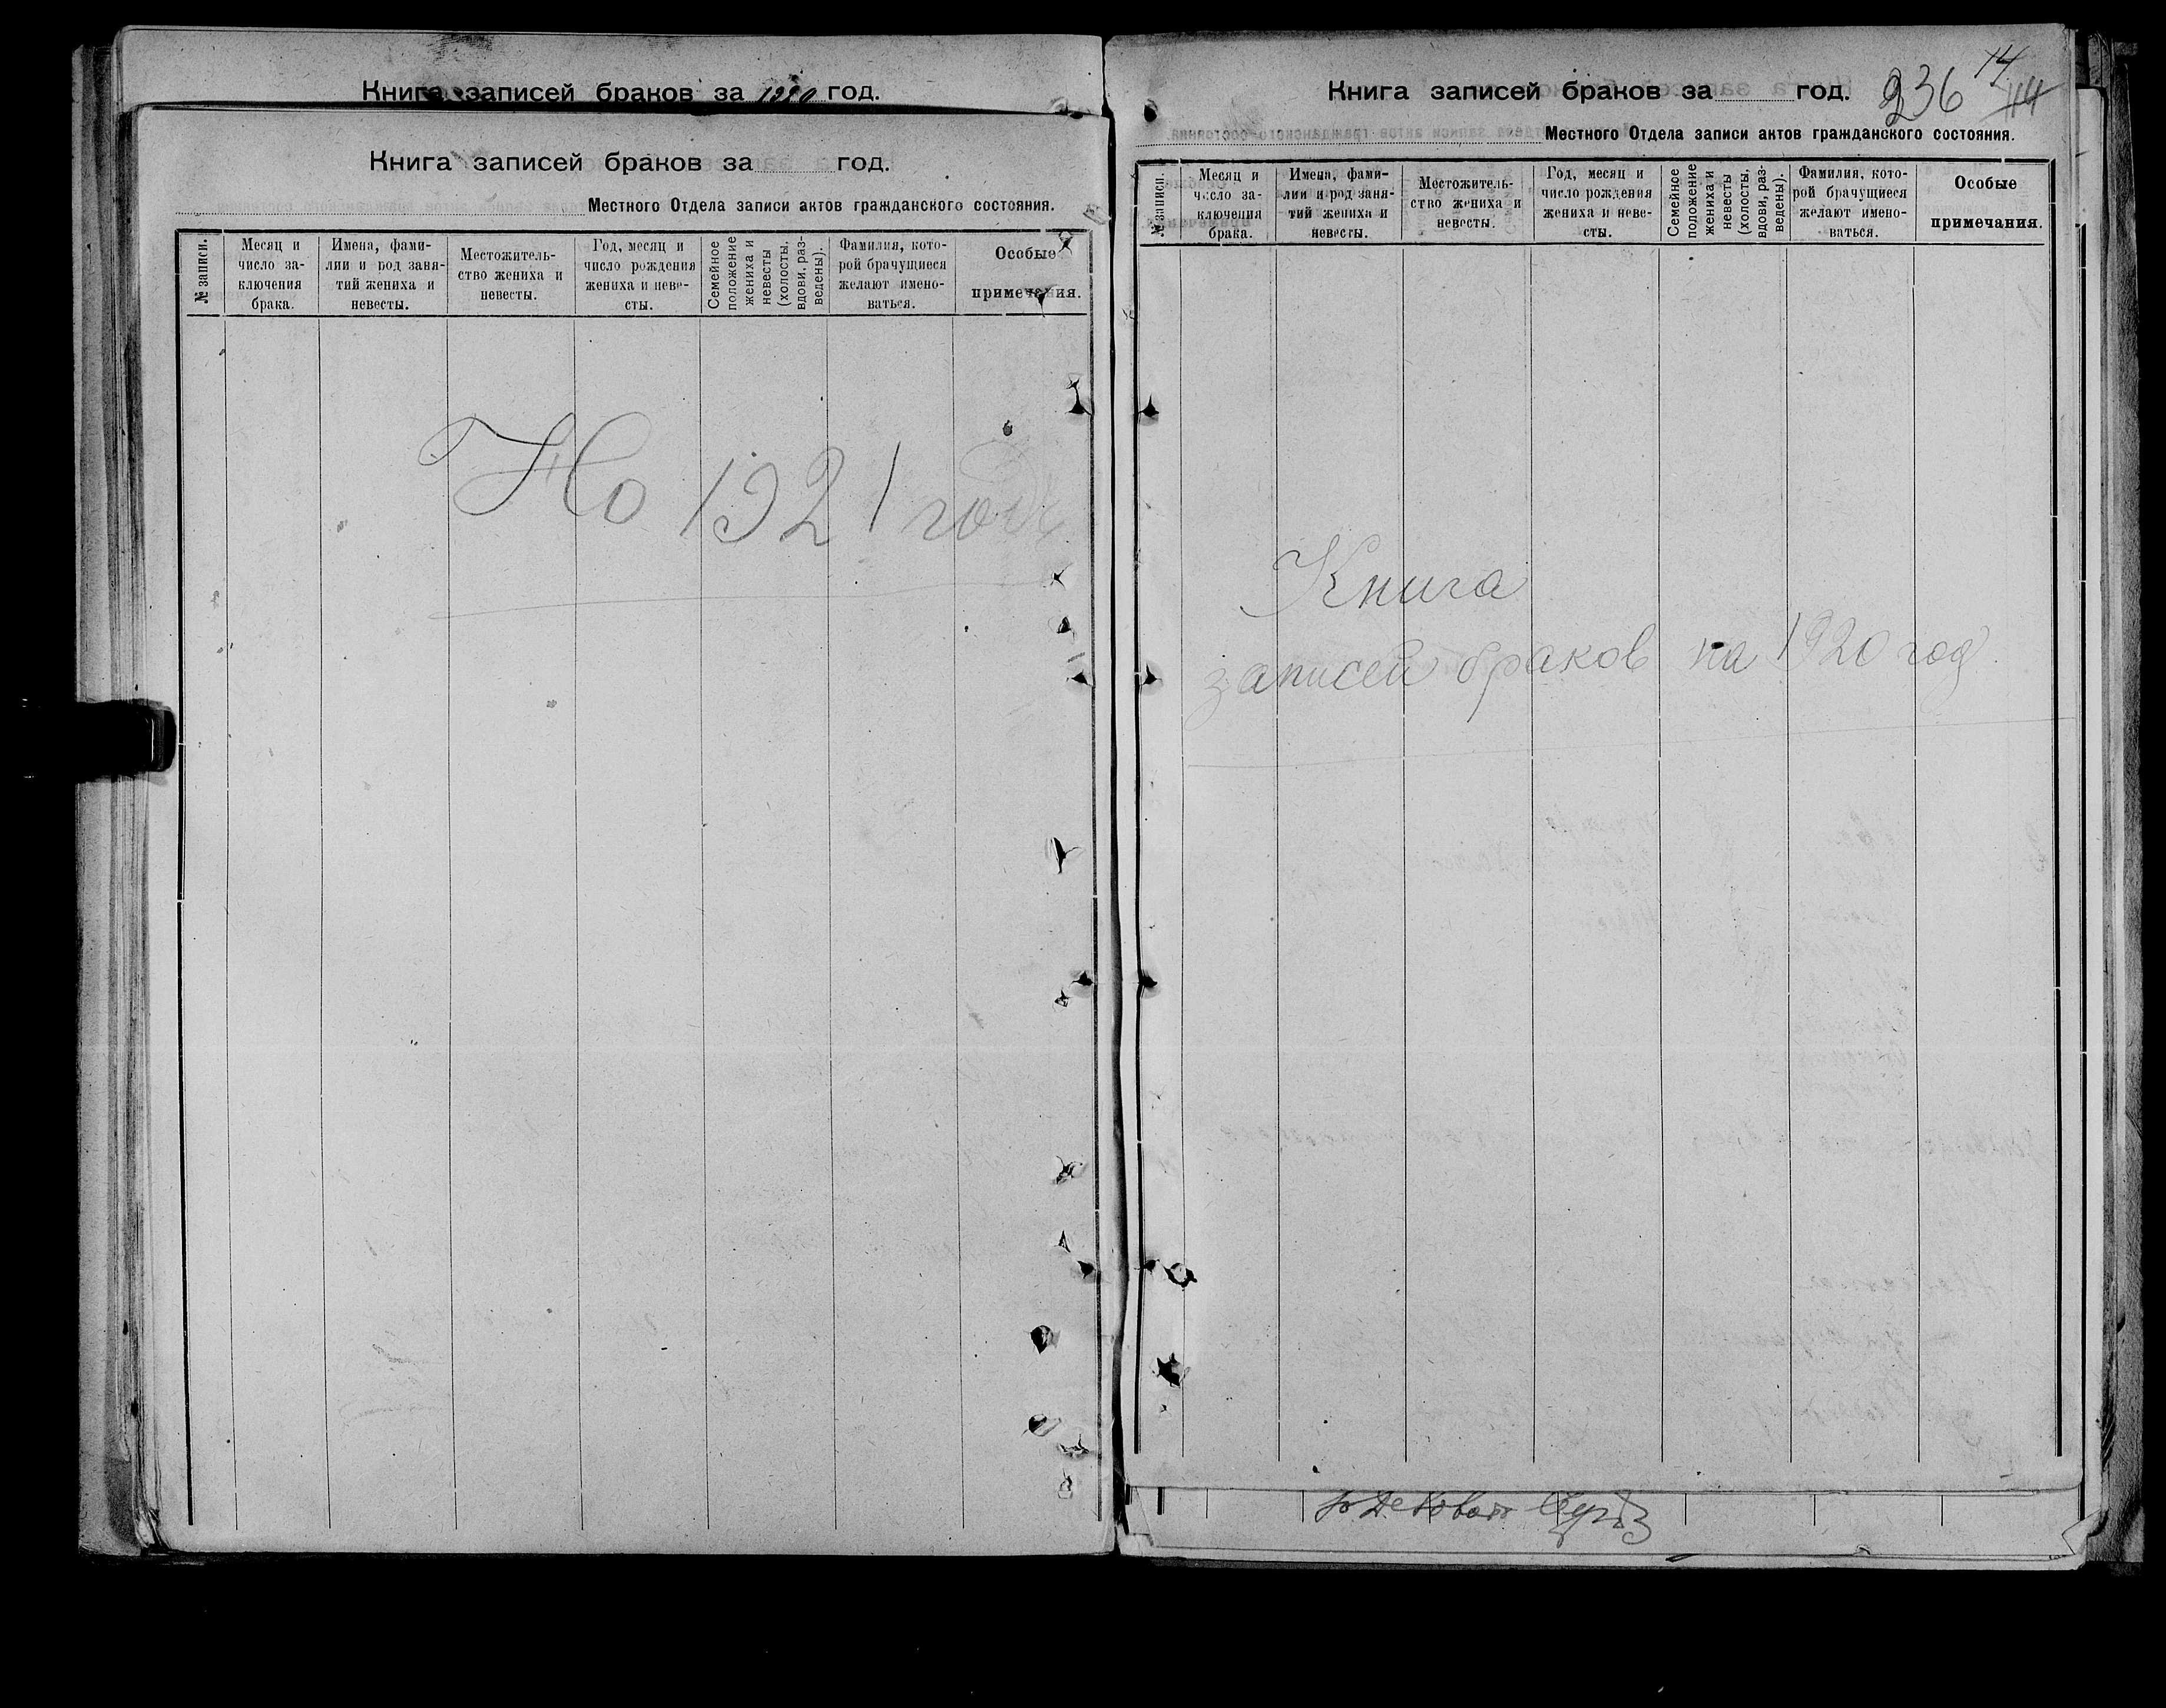 Книга записей браков за 1920 год.
Книга записей браков за год.
Местного Отдела записи актов гражданского состояния.
№ записи.
Месяц и
число за-
ключения
брака.
Имена, фами-
лии и род заня-
тий жениха и
невесты.
Местожитель-
ство жениха и
невесты.
Год, месяц и
число рождения
жениха и неве-
сты.
Семейное
положение
жениха и
невесты
(холосты,
вдовы, раз-
ведены).
Фамилия, кото-
рой брачущиеся
желают имено-
ваться.
Особые
примечания.
1921
Книга записей браков за год.
236
14
Местного Отдела записи актов гражданского состояния.
№ записи.
Месяц и
число за-
ключения
брака.
Имена, фами-
лии и род заня-
тий жениха и
невесты.
Местожитель-
ство жениха и
невесты.
Год, месяц и
число рождения
жениха и неве-
сты.
Семейное
положение
жениха и
невесты
(холосты,
вдови, раз-
ведены).
Фамилия, кото-
рой брачущиеся
желают имено-
ваться.
Особые
примечания.
Книга
записей браков на 1920 год